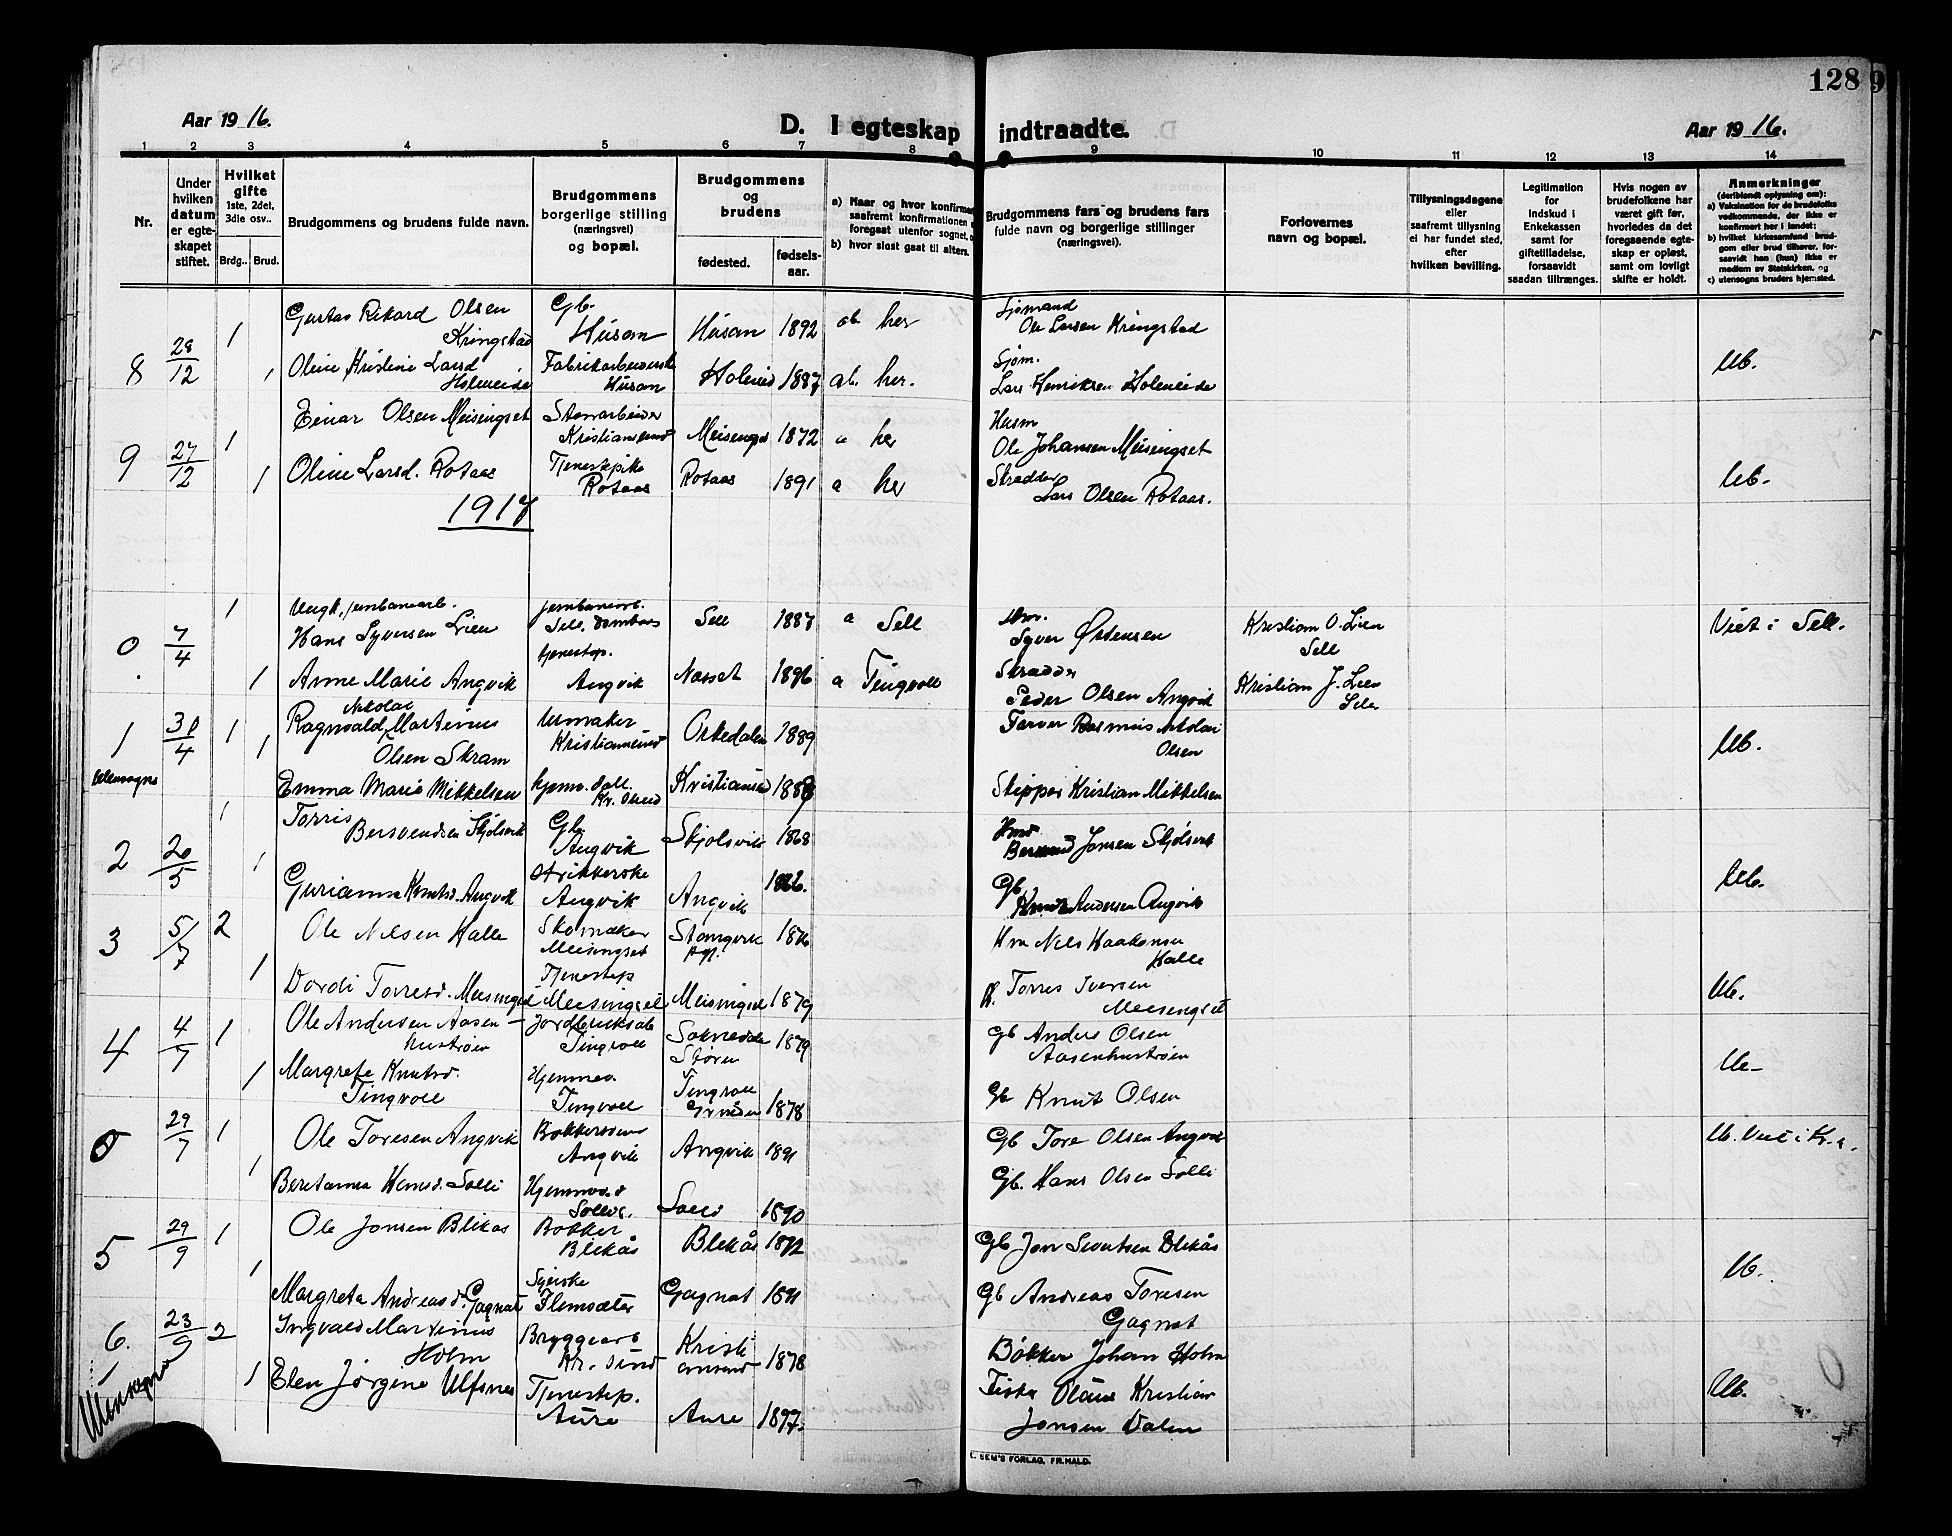 128
Aar 1916.
D. I egteskap indtraadte.
Aar 1916.
1 2 3 4 5 6 7 8 9 10 11 12 13 14
Nr.
Under hvilken datum er egteskapet stiftet.
Hvilket gifte 1ste, 2det, 3dje osv..
Brdg.. Brud.
Brudgommens og brudens fulde navn.
Brudgommens borgerlige stilling (næringsvei) og bopæl.
Brudgommens og brudens
fødested.
fødselsaar.
a) Naar og hvor konfirmer
saafremt konfirmationen
foregaat utenfor sognet,
b) hvor sidst gaat til alters.
Brudgommens fars og brudens fars fulde navn og borgerlige stillinger (næringsvei).
Forlovernes navn og bopæl.
Tillysningsdagene eller saafremt tillysning ei har fundet sted, efter hvilken bevilling.
Legitimation for indskud i Enkekassen samt for giftetilladelse, forsaavidt saadan tiltrænges.
Hvis nogen av brudefolkene har været gift før, hvorledes da det foregaaende egteskap er opløst, samt om lovligt skifte er holdt.
Anmerkninger
(deriblandt oplysning om):
a) Vaksination for de brudefolks vedkommende, der ikke er konfirmert her i landet;
b) hvilket kirkesamfund brudgom eller brud tilhører, forsaavidt han (hun) ikke er medlem av Statskirken, og
c) utensogns bruders hjemsted.
8 28/12 1 Gustav Rikard Olsen Kringstad Gb. Husan Husan 1892 ab her Sjømand Ole Larsen Kringstad
1 Oline Kristine Larsd Holmeide Fabrikarbeiderske Husan Holmeid 1887 ab. her. Sjøm. Lars Henriksen Holmeide Ub.
9 27/12 1 Einar Olsen Meisingset Stenarbeider Kristiansund Meisingset 1872 a her Husm Ole Johansen Meisingset
1 Oline Larsd. Rotaas Tjenestepike Rotaas Rotaas 1891 a her Skrædder Lars Olsen Rotaas. Ub.
1917
0 7/4 1 Ungk. jernbanearb. Hans Syversen Lien jernbanearb. Sell. Dombaas Sell 1887 a Sell Syver Østensen Kristian O. Lien Sell Viet i Sell.
1 Anne Marie Angvik tjenestep. Angvik Nesset 1896 a Tingvoll Skrædder Peder Olsen Angvik Kristian J. Lien Sell
1 30/4 1 1 Ragnvald Nikolai Martinus Olsen Skram Urmaker Kristiansund Orkedalen 1889 Farver Rasmus Nikolai Olsen Ub.
Utensogns Emma Marie Mikkelsen hjemv. datt. Kr. sund Kristiansund 1888 Skipper Kristian Mikkelsen
2 20/5 1 Torris Bersvendsen Skjølsvik Gb. Angvik Skjølsvik 1868 Bersvend Jonsen Skjølsvik
1 Gurianna Knutsd. Angvik Strikkerske Angvik Angvik 1866. Gb Knut Andersen Angvik Ub.
3 5/7 2 Ole Nilsen Halle Skomaker Meisingset Stangvik 1876 Hm Nils Haakonsen Halle
1 Dordi Torresd. Meisingset Tjenestep Meisingset Meisingset 1879 Torres Iversen Meisingset Ub.
4 4/7 1 Ole Andersen Aasenhustrøen Jordbruksarb Tingvoll Soknedal Støren 1879 Gb Anders Olsen Aasenhustrøen
1 Margrete Knutsd. Tingvoll Hjemmev. Tingvoll Tingvoll 1878 Gb Knut Olsen
5 29/7 1 Ole Toresen Angvik Bøkkersvend Angvik Angvik 1891 Gb Tore Olsen Angvik Ub. Viet i Kr.a.
1 Beretanna Hansd. Solli Hjemmev. Solli 1890 Gb. Hans Olsen Solli
5 29/9 1 Ole Jonsen Blikås Bøkker Blikås Blekås 1892 Gb Jon Sivertsen Blikås
1 Margreta Andreasd. Gagnat Syerske Flemsæter Gagnat 1891 Gb Andreas Toresen Gagnat Ub.
6. 23/9 2 Ingvald Martinus Holm Bryggearb Kr. sund Kristiansund 1878 Bøkker Johan Holm
Utensogns 1 Elen Jørgine Ulfsnes Tjenestep. Aure Aure 1897. Fisker Olaus Kristian Jonsen Dalen Ub.
SEM'S FORLAG, FR.HALD.